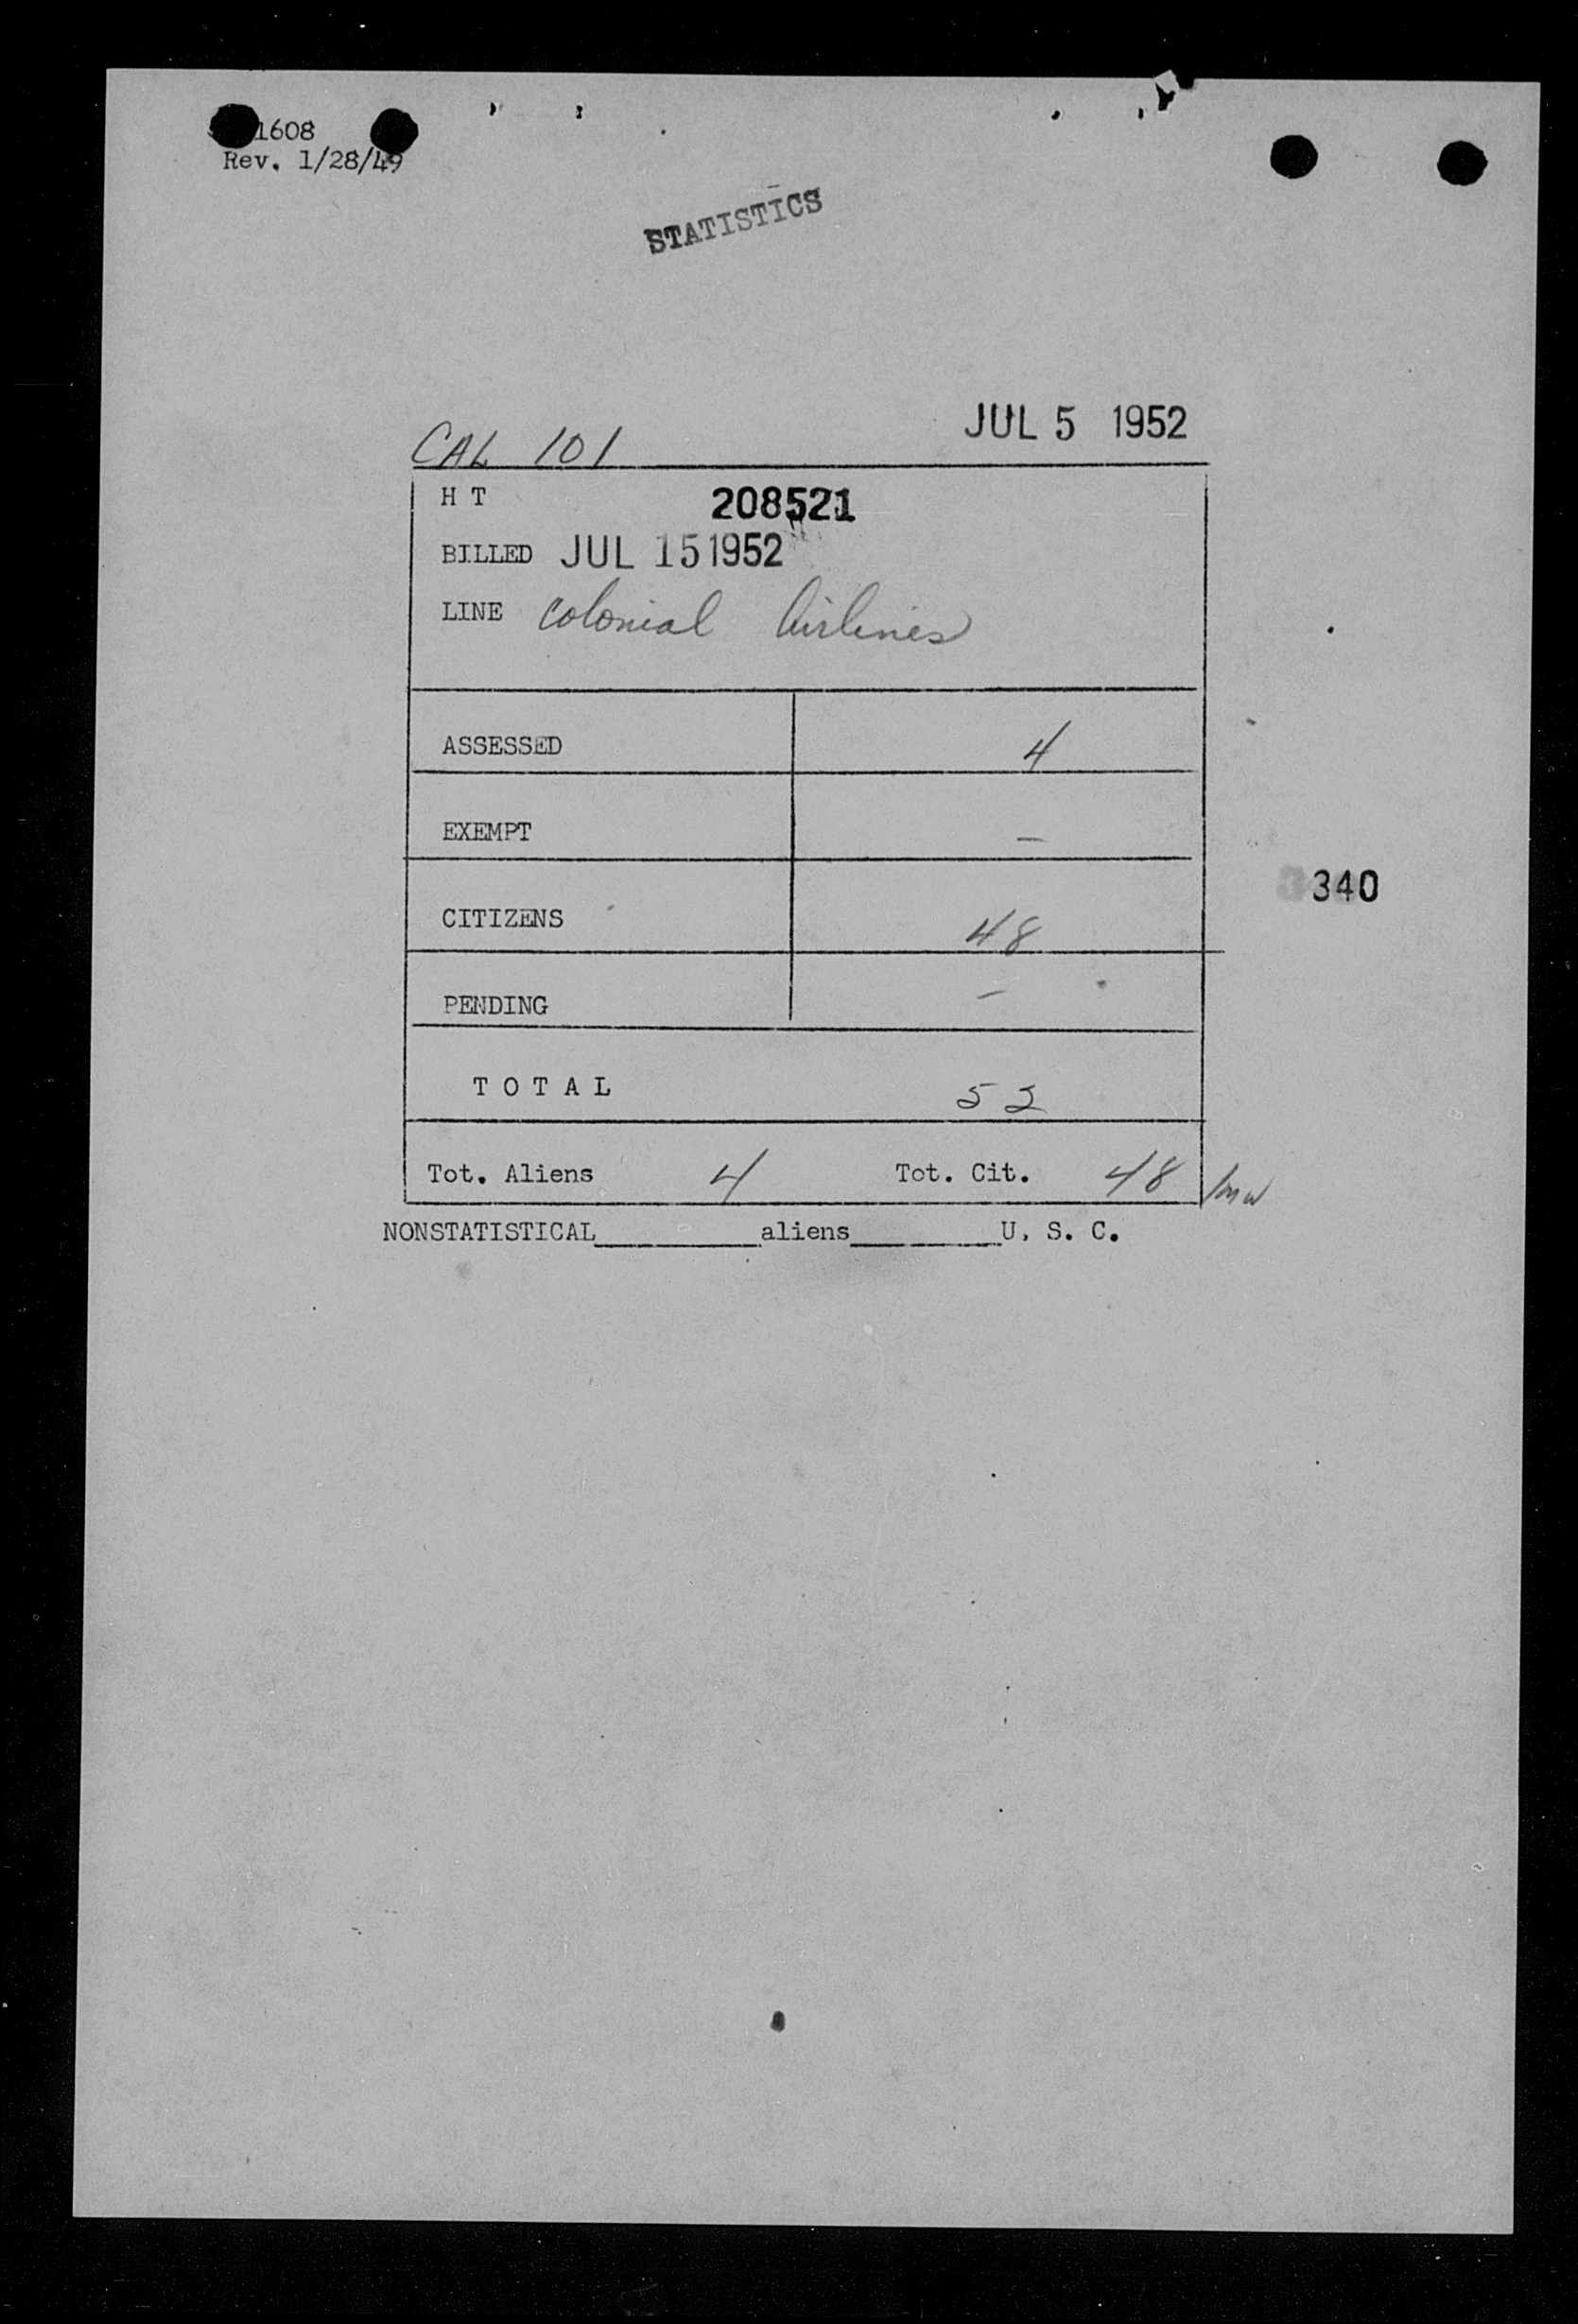 1608
Rev. 1/28/49
STATISTICS
JUL 5 1952
CAL 101
H T 208521
BILLED JUL 15 1952
LINE Colonial Airlines
ASSESSED 4
EXEMPT –
340
CITIZENS 48
PENDING –
T O T A L 52
Tot. Aliens 4 Tot. Cit. 48
NONSTATISTICAL__________aliens_________U. S. C.